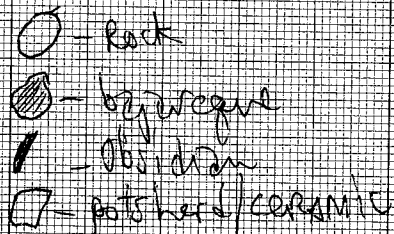 - Rock
- bajareque
- Obsidian
- potsherd/CERAMIC